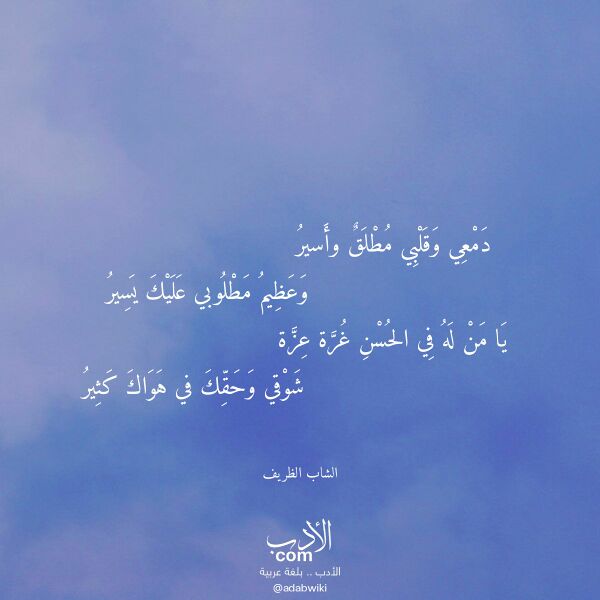 دَمْعِي وَقَلْبِي مُطْلَقٌ وأَسيرُ
وَعَظِيمُ مَطْلُوبي عَلَيْكَ يَسِيرُ
يَا مَنْ لَهُ فِي الحُسْنِ غُرَّة عِزَّة
شَوْقي وَحَقِّكَ في هَوَاكَ كَثِيرُ
الشاب الظريف
الأدب
com
الأدب .. بلغة عربية
@adabwiki